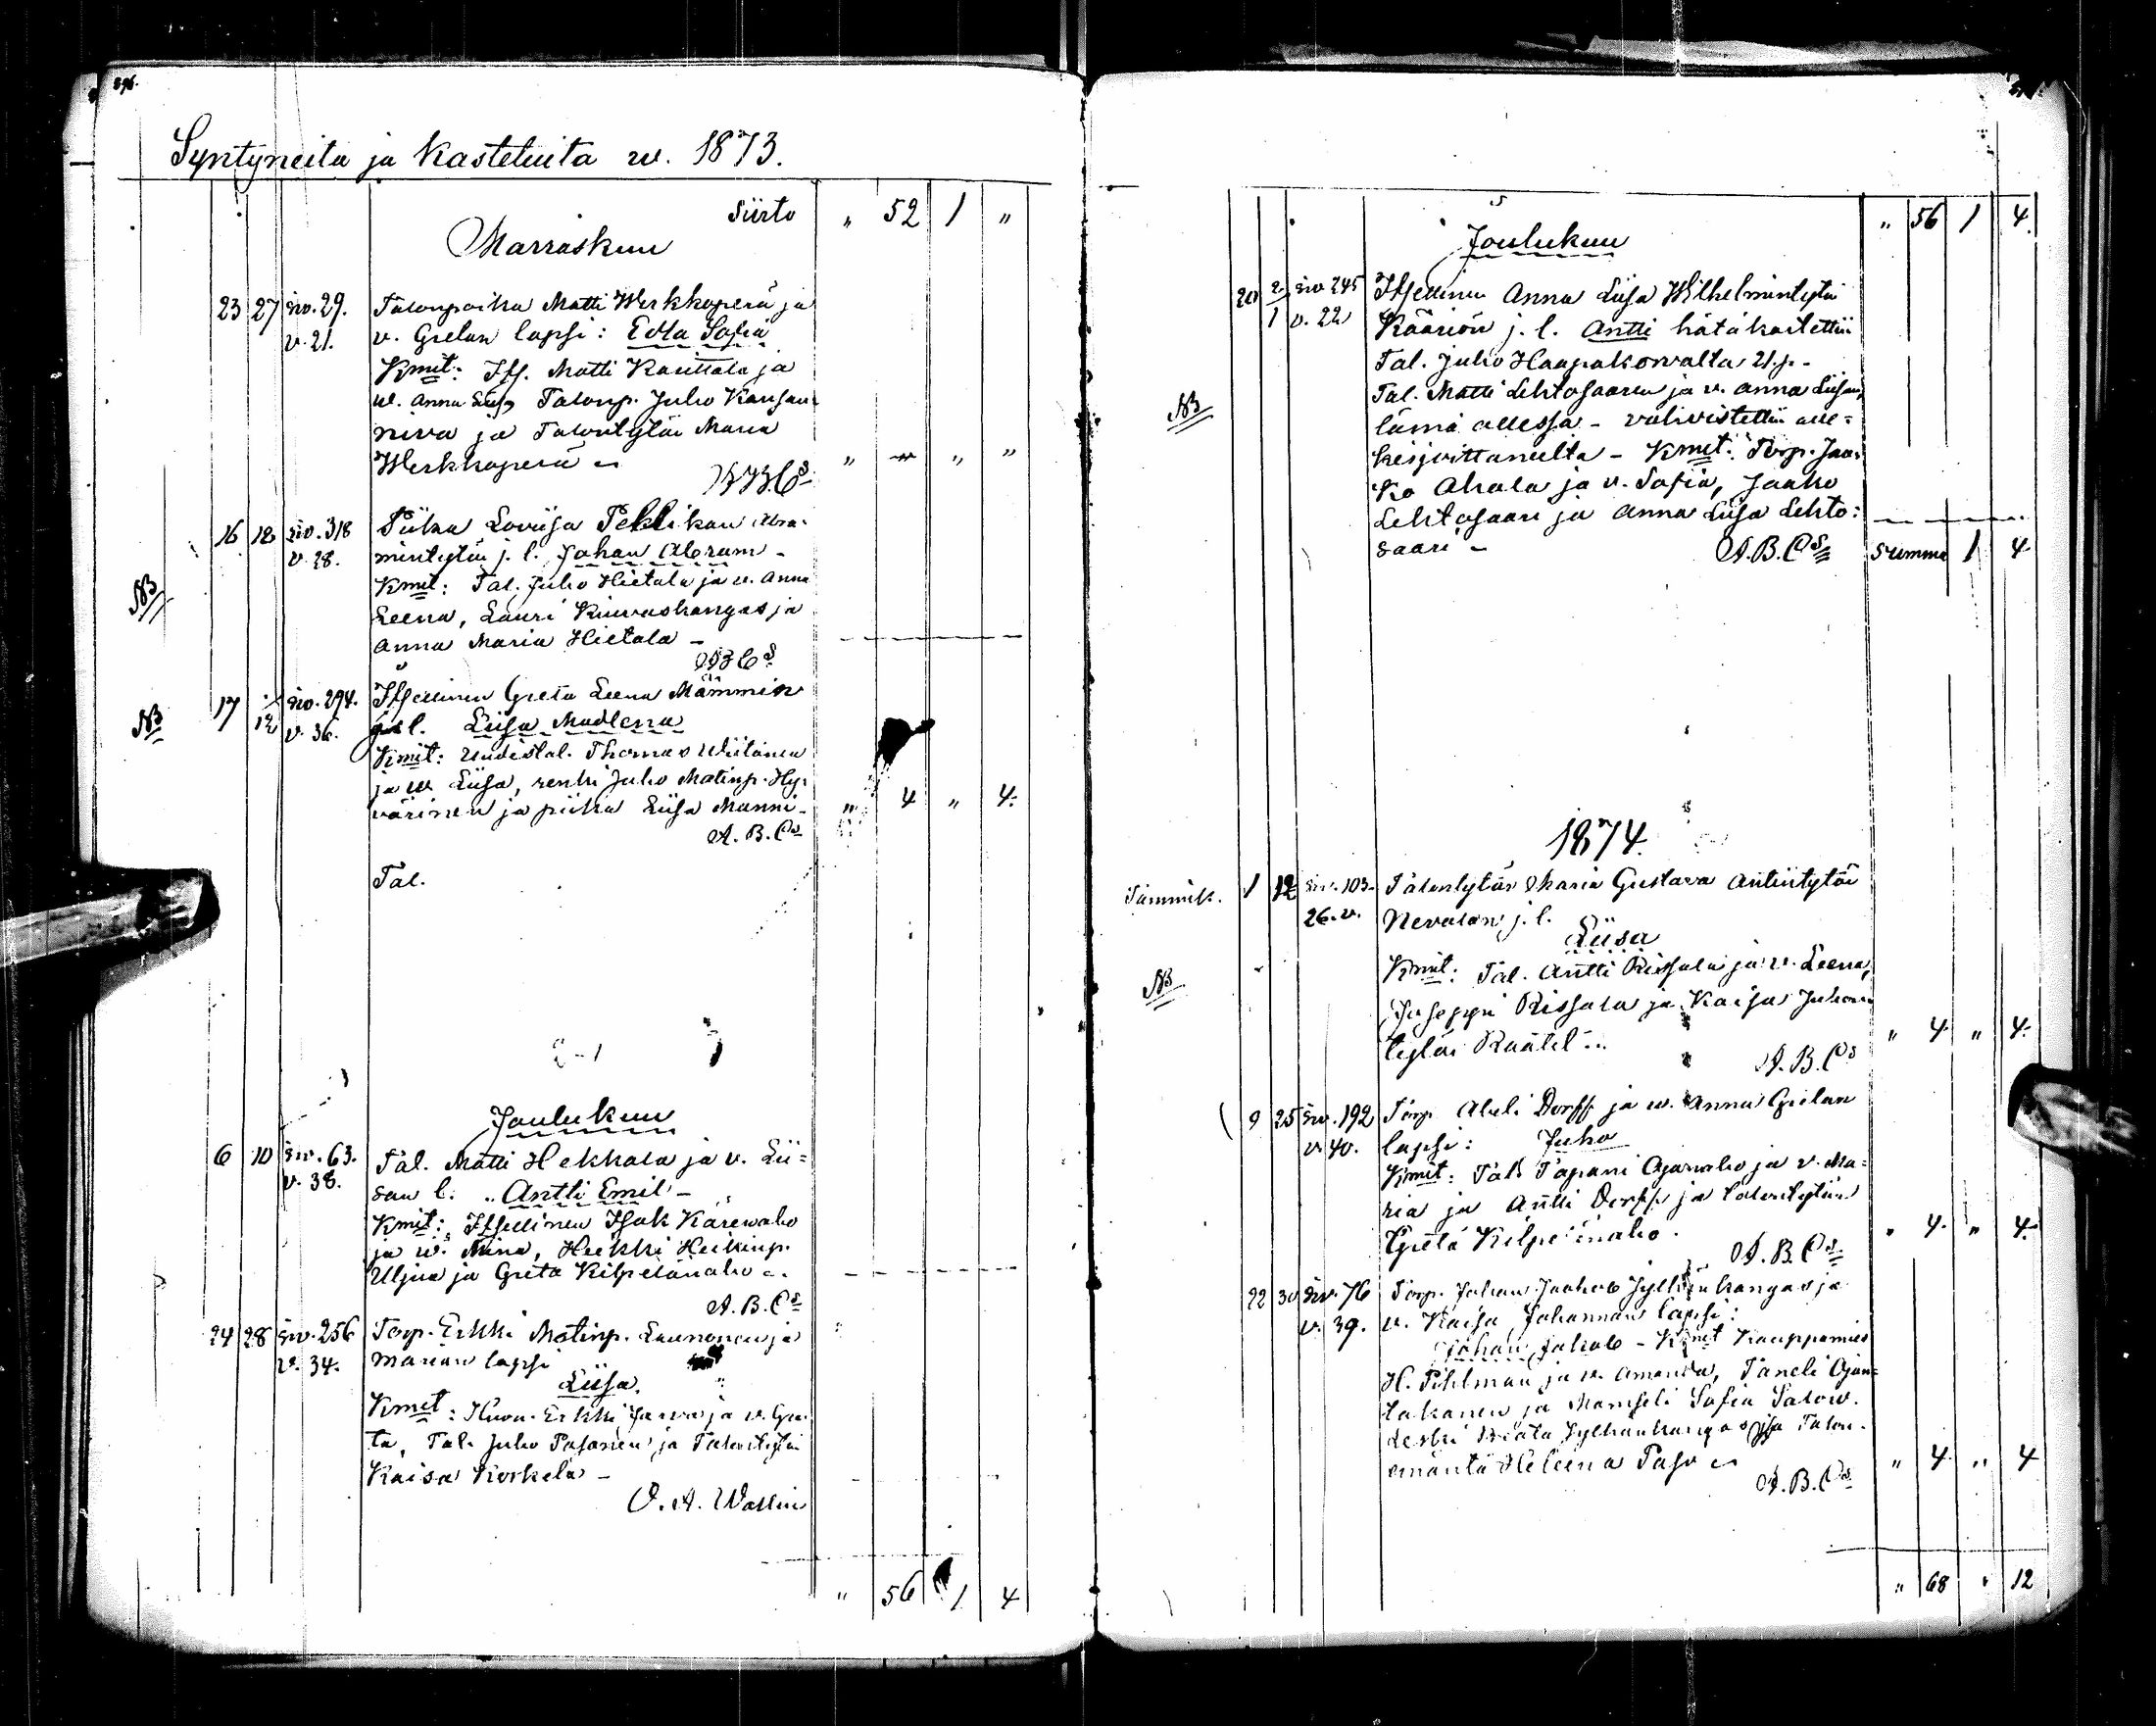 396.
Syntyneitä ja Kastetuita w. 1873.
Siirto " 52 1 "
Marraskuu
23 27 siv. 29. Talonpoika Matti Werkkoperä ja
v. 21. v. Gretan lapsi: Edla Sofia
Kmit: Its. Matti Kanttala ja
w. Anna Liisa Talonp. Juho Kansan
niva ja Talontytär Maria
Werkkoperä " " "
16 18 siv. 318 Piika Loviisa Pehkikan Abra-
v. 28. mintytär j. l. Johan Abram -
NB Kmit: Tal. Juho Hietala ja v. Anna
Leena, Lauri Kiuruskangas ja
Anna Maria Hietala -
NB 17 12 siv. 294. Itsellinen Greta Leena Mämmin
v. 36. l. Liisa Madlena
Kmit: Uudistal. Thomas Wiitanen
ja w. Liisa, renki Juho Matinp. Hy-
värinen ja piika Liisa Manni - " 4 " 4.
A. B. Cs
Tal.
Joulukuu
6 10 siv. 63. Tal. Matti Hekkala ja v. Lii=
v. 38. san l. Antti Emil -
Kmit: Itsellinen Isak Kärewaho
ja w. Mina, Heikki Heikinp.
Uljua ja Greta Kilpelänaho
A. B. Cs
24 28 siv. 256 Torp. Erkki Matinp. Launonen ja
v. 34. Marian lapsi
Liisa.
Kmit: Huon. Erkki Jarva ja v. Gre-
ta, Tal. Juho Pasanen ja Talontytär
Kaisa Korkela -
O. A. Wallin
" 56 1 4
" 56 1 4.
Joulukuu
20 2/1 siv 245 Itsellinen Anna Liisa Wilhelmintytär
v. 22 Käärion j. l. Antti hätäkastettiin
Tal. Juho Haapakorvalta 21.p. -
NB Tal. Matti Lehtosaaren ja v. Anna Liisan,
läsnä ollessa - vahvistettiin alle=
kirjoittaneelta - Kmit: Torp. Jaa-
ko Ahola ja v. Sofia, Jaako
Lehtosaari ja Anna Liisa Lehto=
saari - A. B. Cs Summa 1 4
1874.
Tammik. 1 12 siv. 103. Talontytär Maria Gustava Antintytär
26. v. Nevalan j. l.
Liisa
NB Kmit: Tal. Antti Rissala ja v. Leena,
Juseppi Rissala ja Kaisa Juhon
tytär Räätel " 4 " 4.
A. B. Cs
9 25 siv. 192 Torp Abeli Dorff ja w. Anna Gretan
v. 40. lapsi: Juho
Kmit: Tal. Tapani Ojanaho ja v. Ma=
ria ja Antti Dorff ja talontytär
Greta Kilpelänaho. " 4. " 4.
A. B. Cs.
22 30 siv. 76 Torp. Johan Jaakob Jylhänkangas ja
v. 39. v. Kaisa Johannan lapsi:
Johan Jakob - Kmit Kauppamies
H. Pihlman ja v. Amanda, Taneli Ojan=
takanen ja Mamseli Sofia
leski Beata Jylhänkangas ja Talon-
emäntä Heleena Paso " 4 " 4
A. B. Cs
" 68 " 12